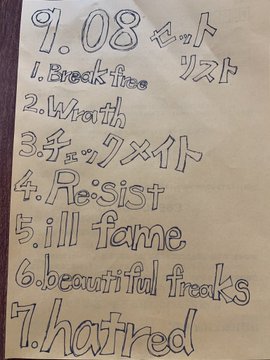 9.08 セット
リスト
1. Break free
2. Wrath
3. チェックメイト
4. Re:sist
5. ill fame
6. beautiful freaks
7. hatred